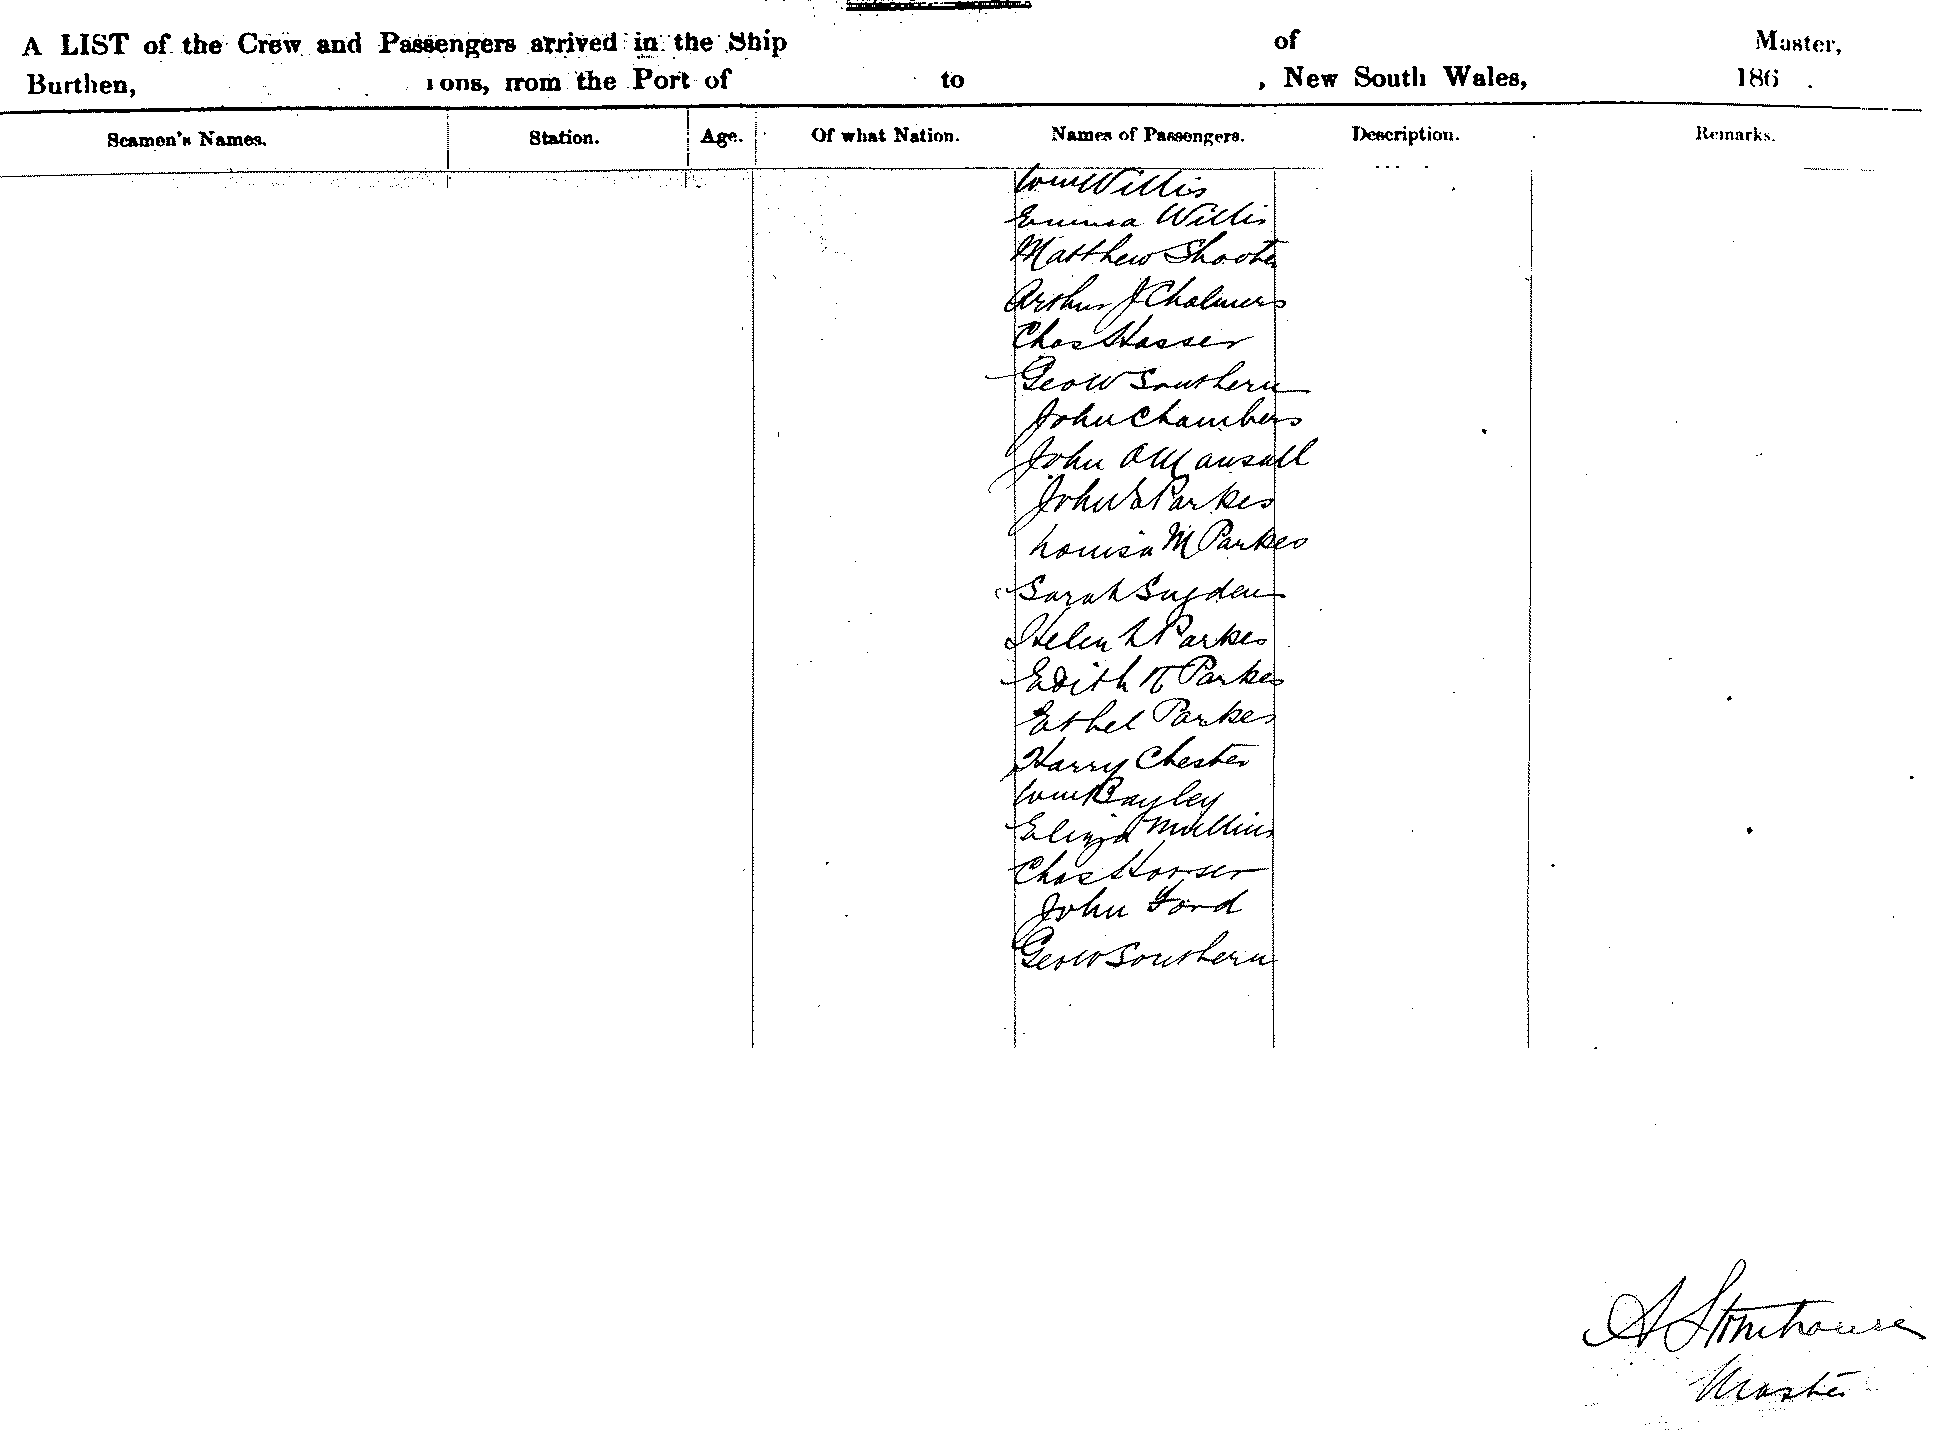 A LIST of the Crew and Passengers arrived in the Ship of Master,
Burthen, Tons, from the Port of to , New South Wales, 186 .
Seamen's Names. Station. Age. Of what Nation. Names of Passengers. Description. Remarks.
Wm Willis
Emma Willis
Matthew Shooter
Arthur J Chalmers
Chas Hasser
Geo W Southern
John Chambers
John A Mansall
John S Parkes
Louisa M Parkes
Sarah Sugden
Helen L Parkes
Edith Parkes
Ethel Parkes
Harry Chester
Wm Bayley
Eliza Mullins
Chas
John Ford
Geo W Southern
A Stonhouse
Master